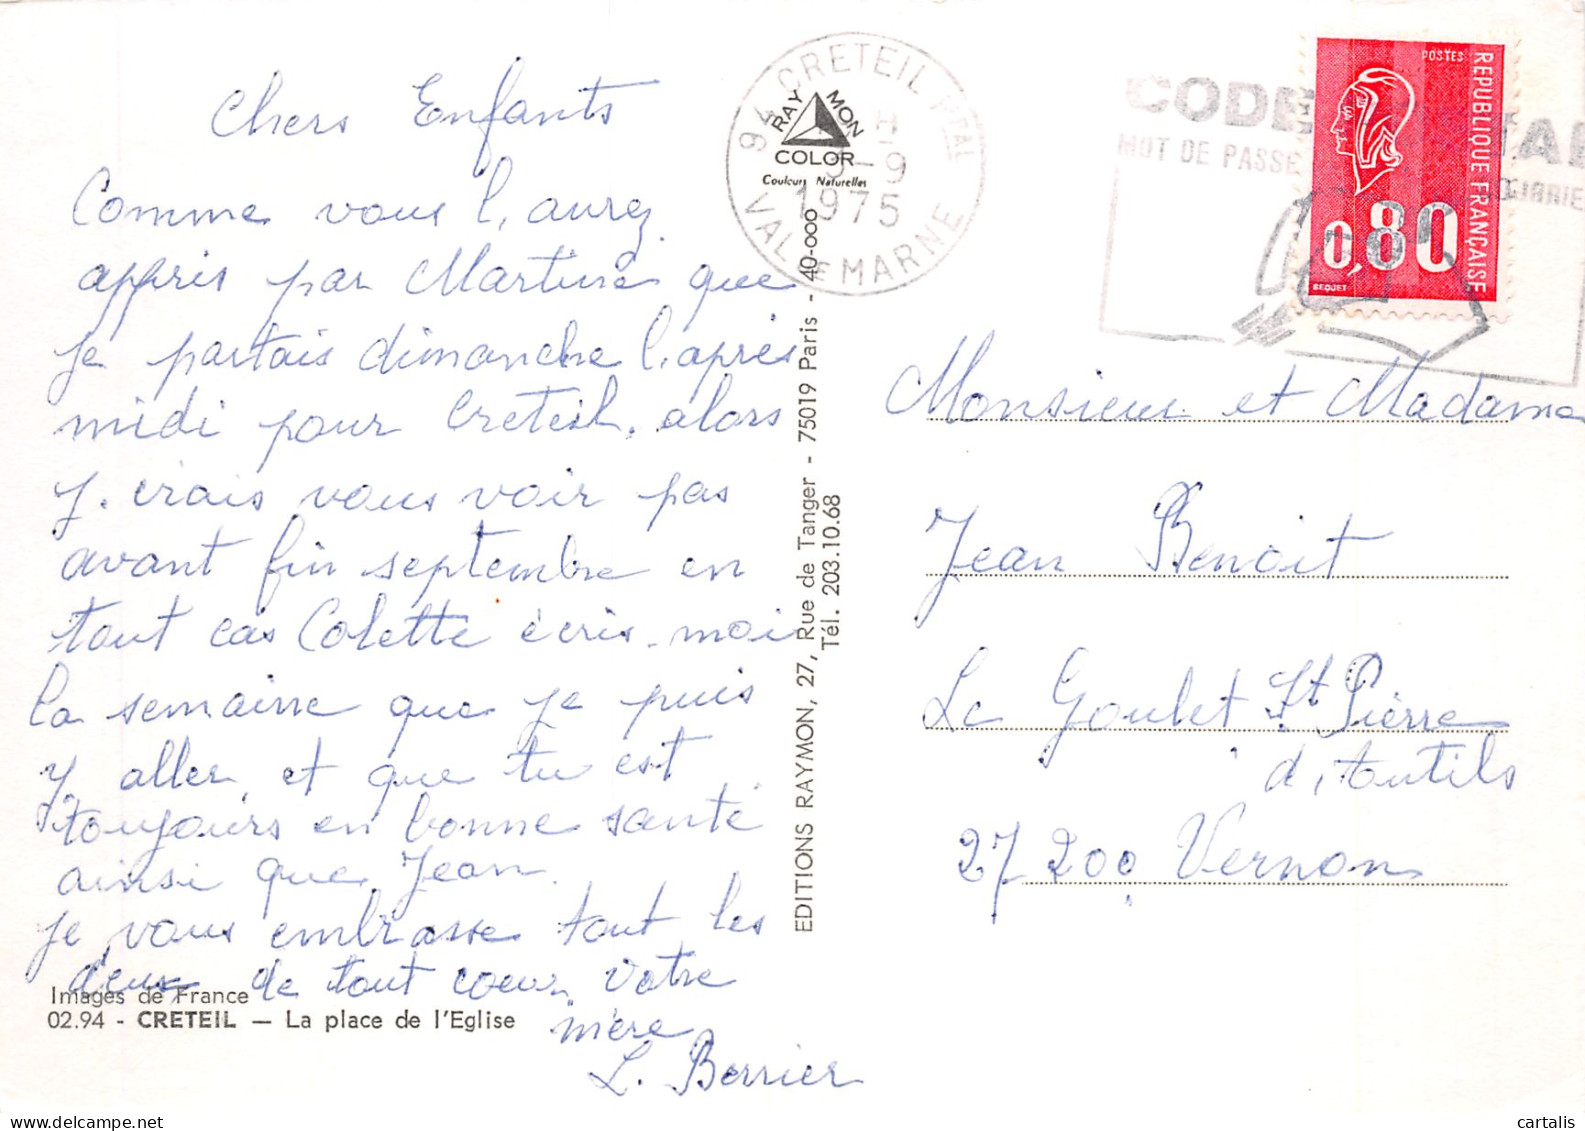 Chers Enfants
Comme vous l'aurez
appris par Martine que
je partais dimanche l'après
midi pour Creteil, alors
j. irais vous voir pas
avant fin septembre en
tout cas Colette écris-moi
la semaine que je puis
y aller, et que tu est
toujours en bonne santé
ainsi que Jean.
je vous embrasse tout les
deux de tout coeur Votre
mère
L. Berrier
Images de France
02.94 - CRETEIL — La place de l'Eglise
94 CRETEIL PPAL
3-9
1975
VAL DE MARNE
RAYMON
COLOR
Couleurs Naturelles
EDITIONS RAYMON, 27, Rue de Tanger - 75019 Paris - 40-000
Tél. 203.10.68
CODE
MOT DE PASSE
POSTES
REPUBLIQUE FRANÇAISE
0,80
BEQUET
Monsieur et Madame
Jean Benoit
Le Goulet St Pierre
d'Autils
27200 Vernon
cartalis
www.delcampe.net